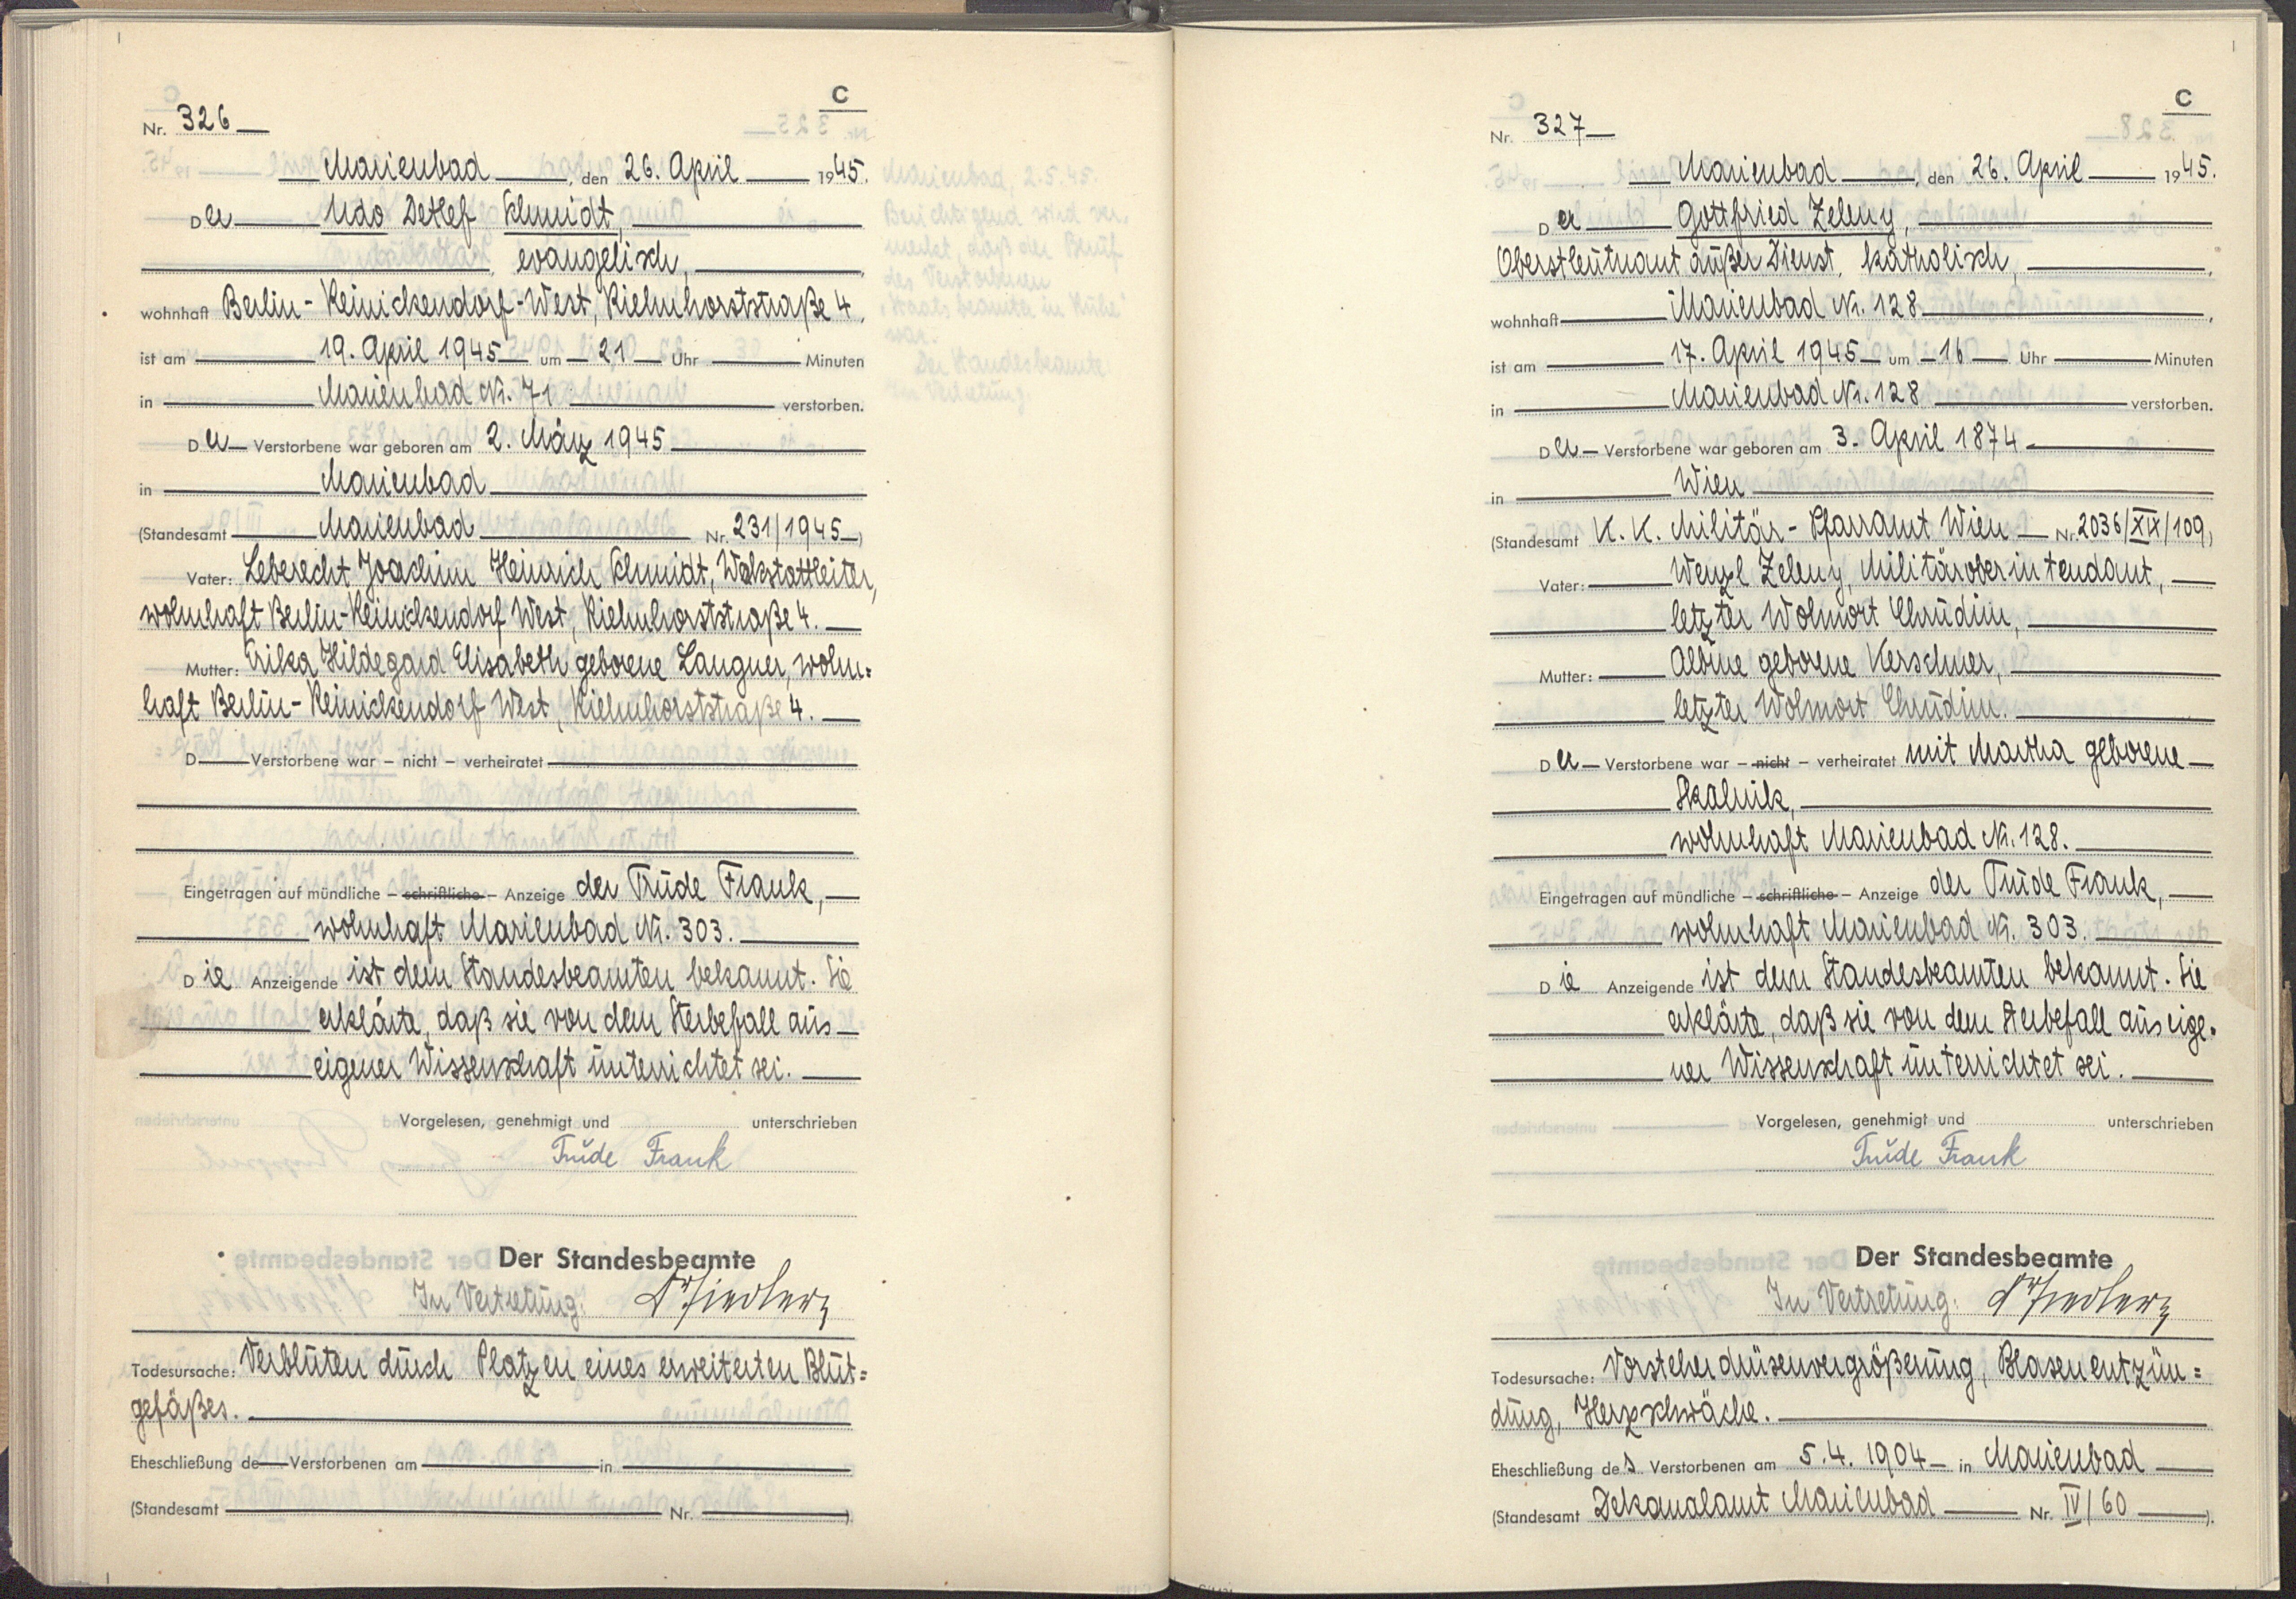 C
Nr. 326
Marienbad, den 26. April 1945.
Der Udo Detlef Schmidt,
evangelisch,
wohnhaft Berlin-Reinickendorf-West, Kielmhorststraße 4,
ist am 19. April 1945 um 21 Uhr Minuten
in Marienbad Nr. 71 verstorben.
Der Verstorbene war geboren am 2. März 1945
in Marienbad
(Standesamt Marienbad Nr. 231/1945)
Vater: Leberecht Joachim Heinrich Schmidt, Werkstattleiter,
wohnhaft Berlin-Reinickendorf West, Kielmhorststraße 4.
Mutter: Erika Hildegard Elisabeth geborene Langner, wohn=
haft Berlin-Reinickendorf West, Kielmhorststraße 4.
D Verstorbene war – nicht – verheiratet
Eingetragen auf mündliche – schriftliche – Anzeige der Trude Frank,
wohnhaft Marienbad Nr. 303.
Die Anzeigende ist dem Standesbeamten bekannt. Sie
erklärte, daß sie von dem Sterbefall aus
eigener Wissenschaft unterrichtet sei.
Vorgelesen, genehmigt und unterschrieben
Trude Frank
Der Standesbeamte
In Vertretung:
Todesursache: Verbluten durch Platzen eines erweiterten Blut=
gefäßes.
Eheschließung de Verstorbenen am in
(Standesamt Nr. ).
C
Nr. 327
Marienbad, den 26. April 1945.
Der Gottfried Zeleny,
Oberstleutnant außer Dienst, katholisch,
wohnhaft Marienbad Nr. 128,
ist am 17. April 1945 um 16 Uhr Minuten
in Marienbad Nr. 128 verstorben.
Der Verstorbene war geboren am 3. April 1874
in Wien
(Standesamt K. K. Militär-Pfarramt Wien Nr. 2036/XIX/109)
Vater: Wenzl Zeleny, Militäroberintendant,
letzter Wohnort Chrudim,
Mutter: Albine geborene Kerschner,
letzter Wohnort Chrudim.
Der Verstorbene war – nicht – verheiratet mit Martha geborene
Skalnik,
wohnhaft Marienbad Nr. 128.
Eingetragen auf mündliche – schriftliche – Anzeige der Trude Frank,
wohnhaft Marienbad Nr. 303.
Die Anzeigende ist dem Standesbeamten bekannt. Sie
erklärte, daß sie von dem Sterbefall aus eige-
ner Wissenschaft unterrichtet sei.
Vorgelesen, genehmigt und unterschrieben
Trude Frank
Der Standesbeamte
In Vertretung:
Todesursache: Vorsteherdrüsenvergrößerung, Blasenentzün=
dung, Herzschwäche.
Eheschließung des Verstorbenen am 5.4.1904 in Marienbad
(Standesamt Dekanalamt Marienbad Nr. IV/60).